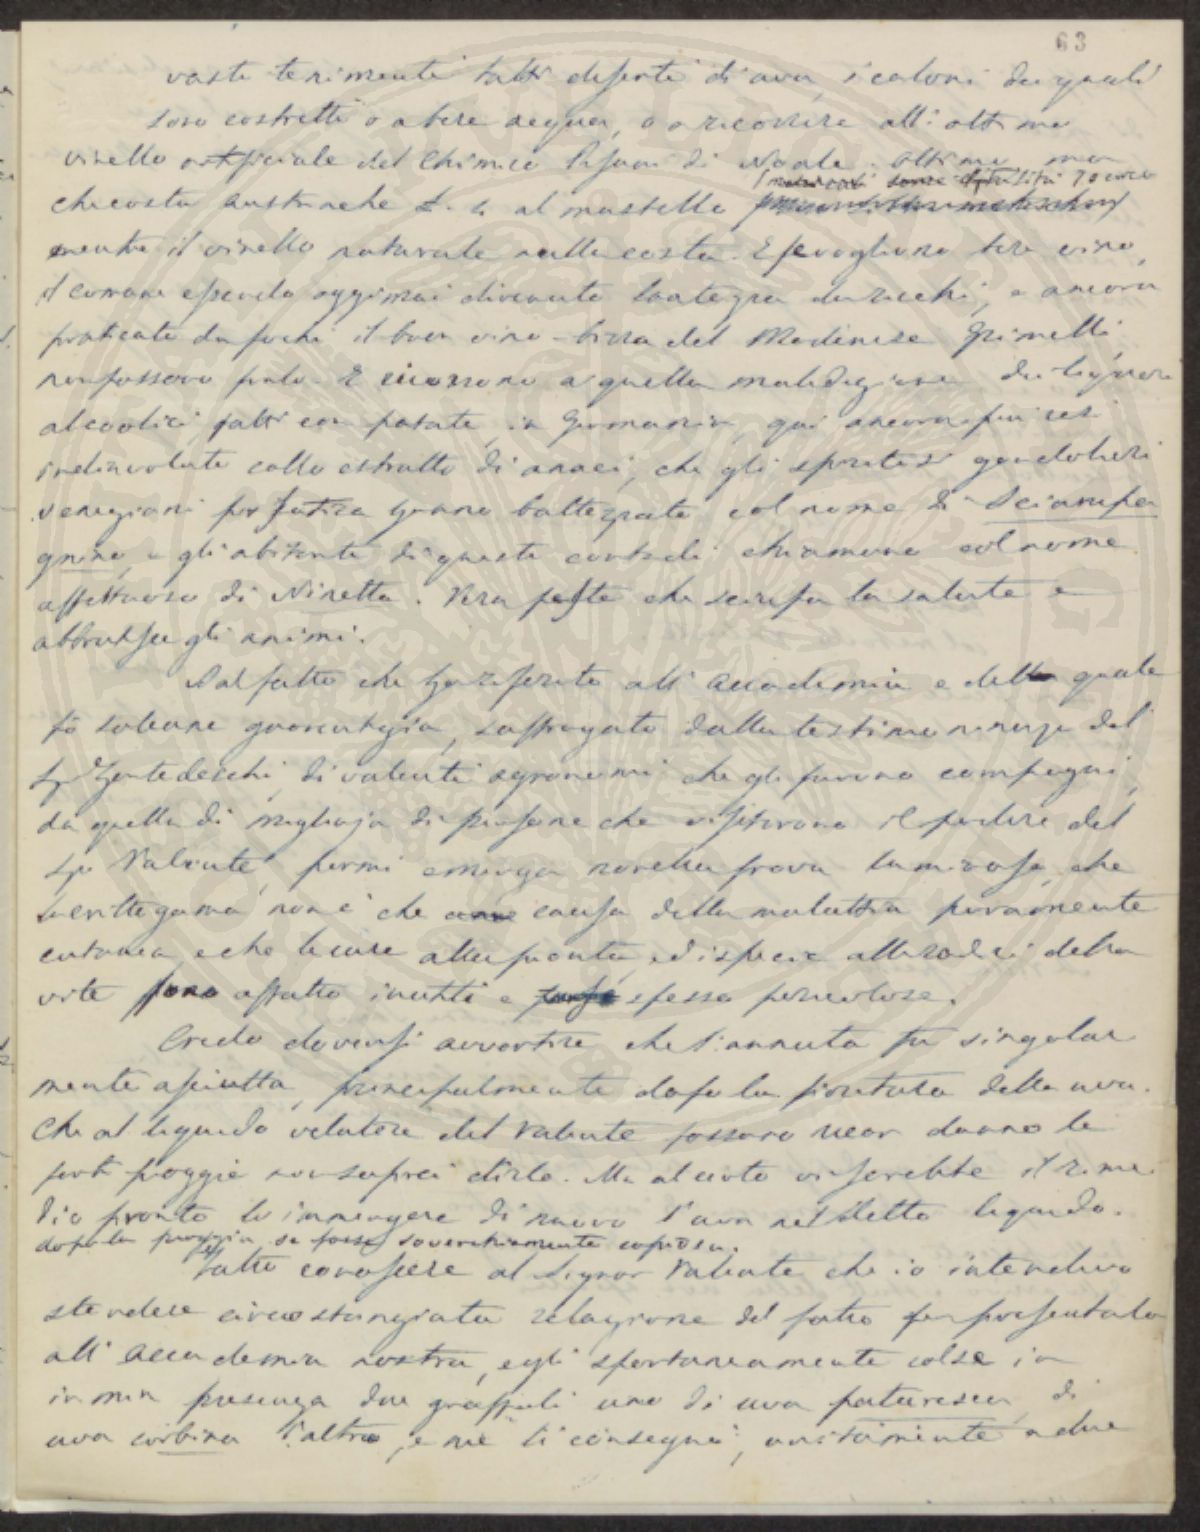 63
vasti tenimenti tutti deserti di uva, i coloni dei quali
sono costretti o a bere acqua, o a ricorrere all'ottimo
vinello artifiziale del Chimico Pisani di Noale. Ottimo, ma
che costa austriache L. 4 al mastello
mentre il vinello naturale nulla costa. E se vogliono bere vino,
il comune essendo oggimai divenuto bottega da ricchi, e ancora
praticato da pochi il buon vino-birra del Modenese Grimelli
non possono farlo. E ricorrono a quella maledizione dei liquori
alcoolici fatti con patate, in Germania, qui ancora più resi
indiavolati collo estratto di anaci, che gli spiritosi gondolieri
veneziani per satira hanno battezzato col nome di Sciampa
gnino, e gli abitanti di queste contrade chiamano col nome
affettuoso di Ninetta. Vera peste che sciupa la salute e
abbrutisce gli animi.
Dal fatto che ho riferito all'Accademia e del quale
fo solenne guarentigia, suffragato dalla testimonianza del
Sig. Zantedeschi, di valenti agronomi che gli furono compagni,
da quella di migliaja di persone che visitarono il podere del
Sig. Valente, parmi emerga novella prova luminosa, che
la crittogama non è che causa della malattia puramente
cutanea, e che le cure alle piante, ed ispecie alle radici della
vite sono affatto inutili e spesso pericolose.
Credo doversi avvertire che l'annata fu singolar
mente asciutta, principalmente dopo la fioritura della uva.
Che al liquido velatore del Valente possano recar danno le
forti pioggie non saprei dirlo. Ma al certo vi sarebbe il rime
dio pronto lo immergere di nuovo l'uva nel detto liquido.
dopo la pioggia se fosse soverchiamente copiosa.
Fatto conoscere al Signor Valente che io intendeva
stendere circostanziata relazione del fatto per presentarla
all'Accademia nostra, egli spontaneamente colse in
in mia presenza due grappoli uno di uva pataresca, di
uva corbina l'altro, e me li consegnò, unitamente a due